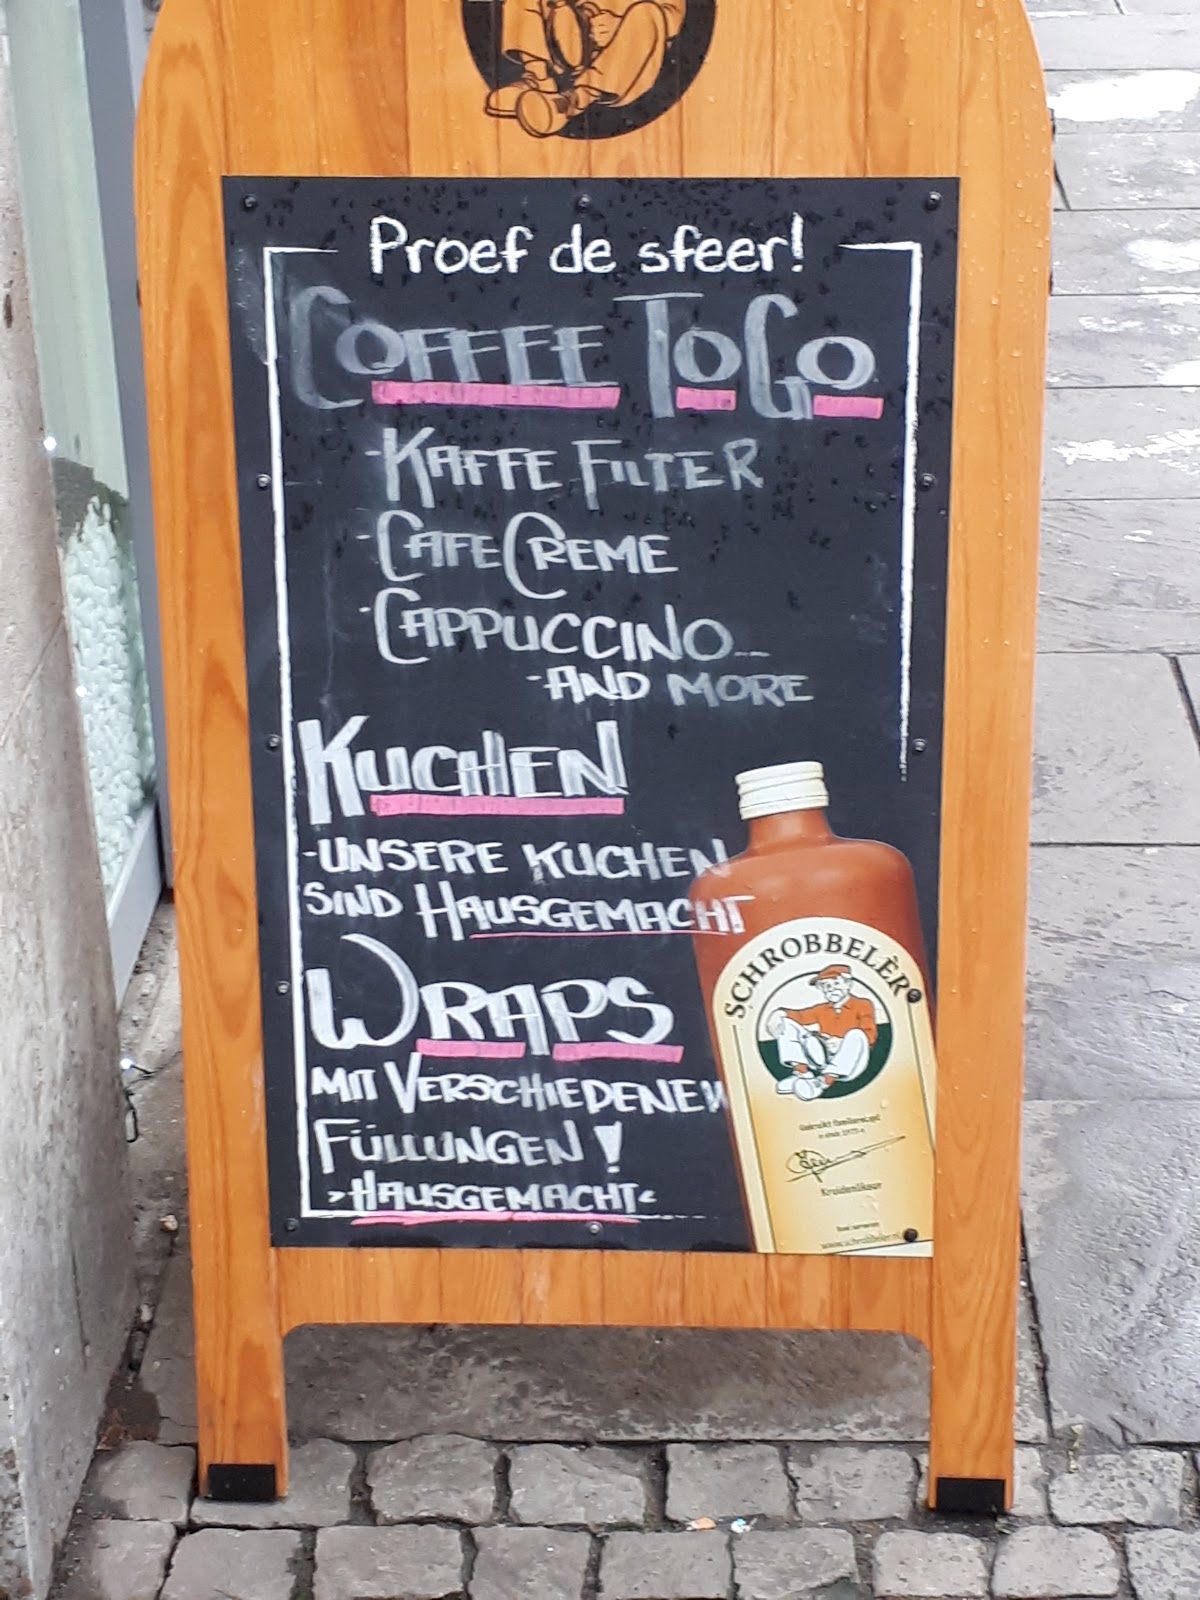 Proef de sfeer!
COFFEE TO GO
-KAFFE FILTER
-CAFE CREME
-CAPPUCCINO...
-AND MORE
KUCHEN
-UNSERE KUCHEN
SIND HAUSGEMACHT
WRAPS
MIT VERSCHIEDENEN
FÜLLUNGEN!
>HAUSGEMACHT<
SCHROBBELÈR
Kruidenlikeur
www.schrobbeler.nl